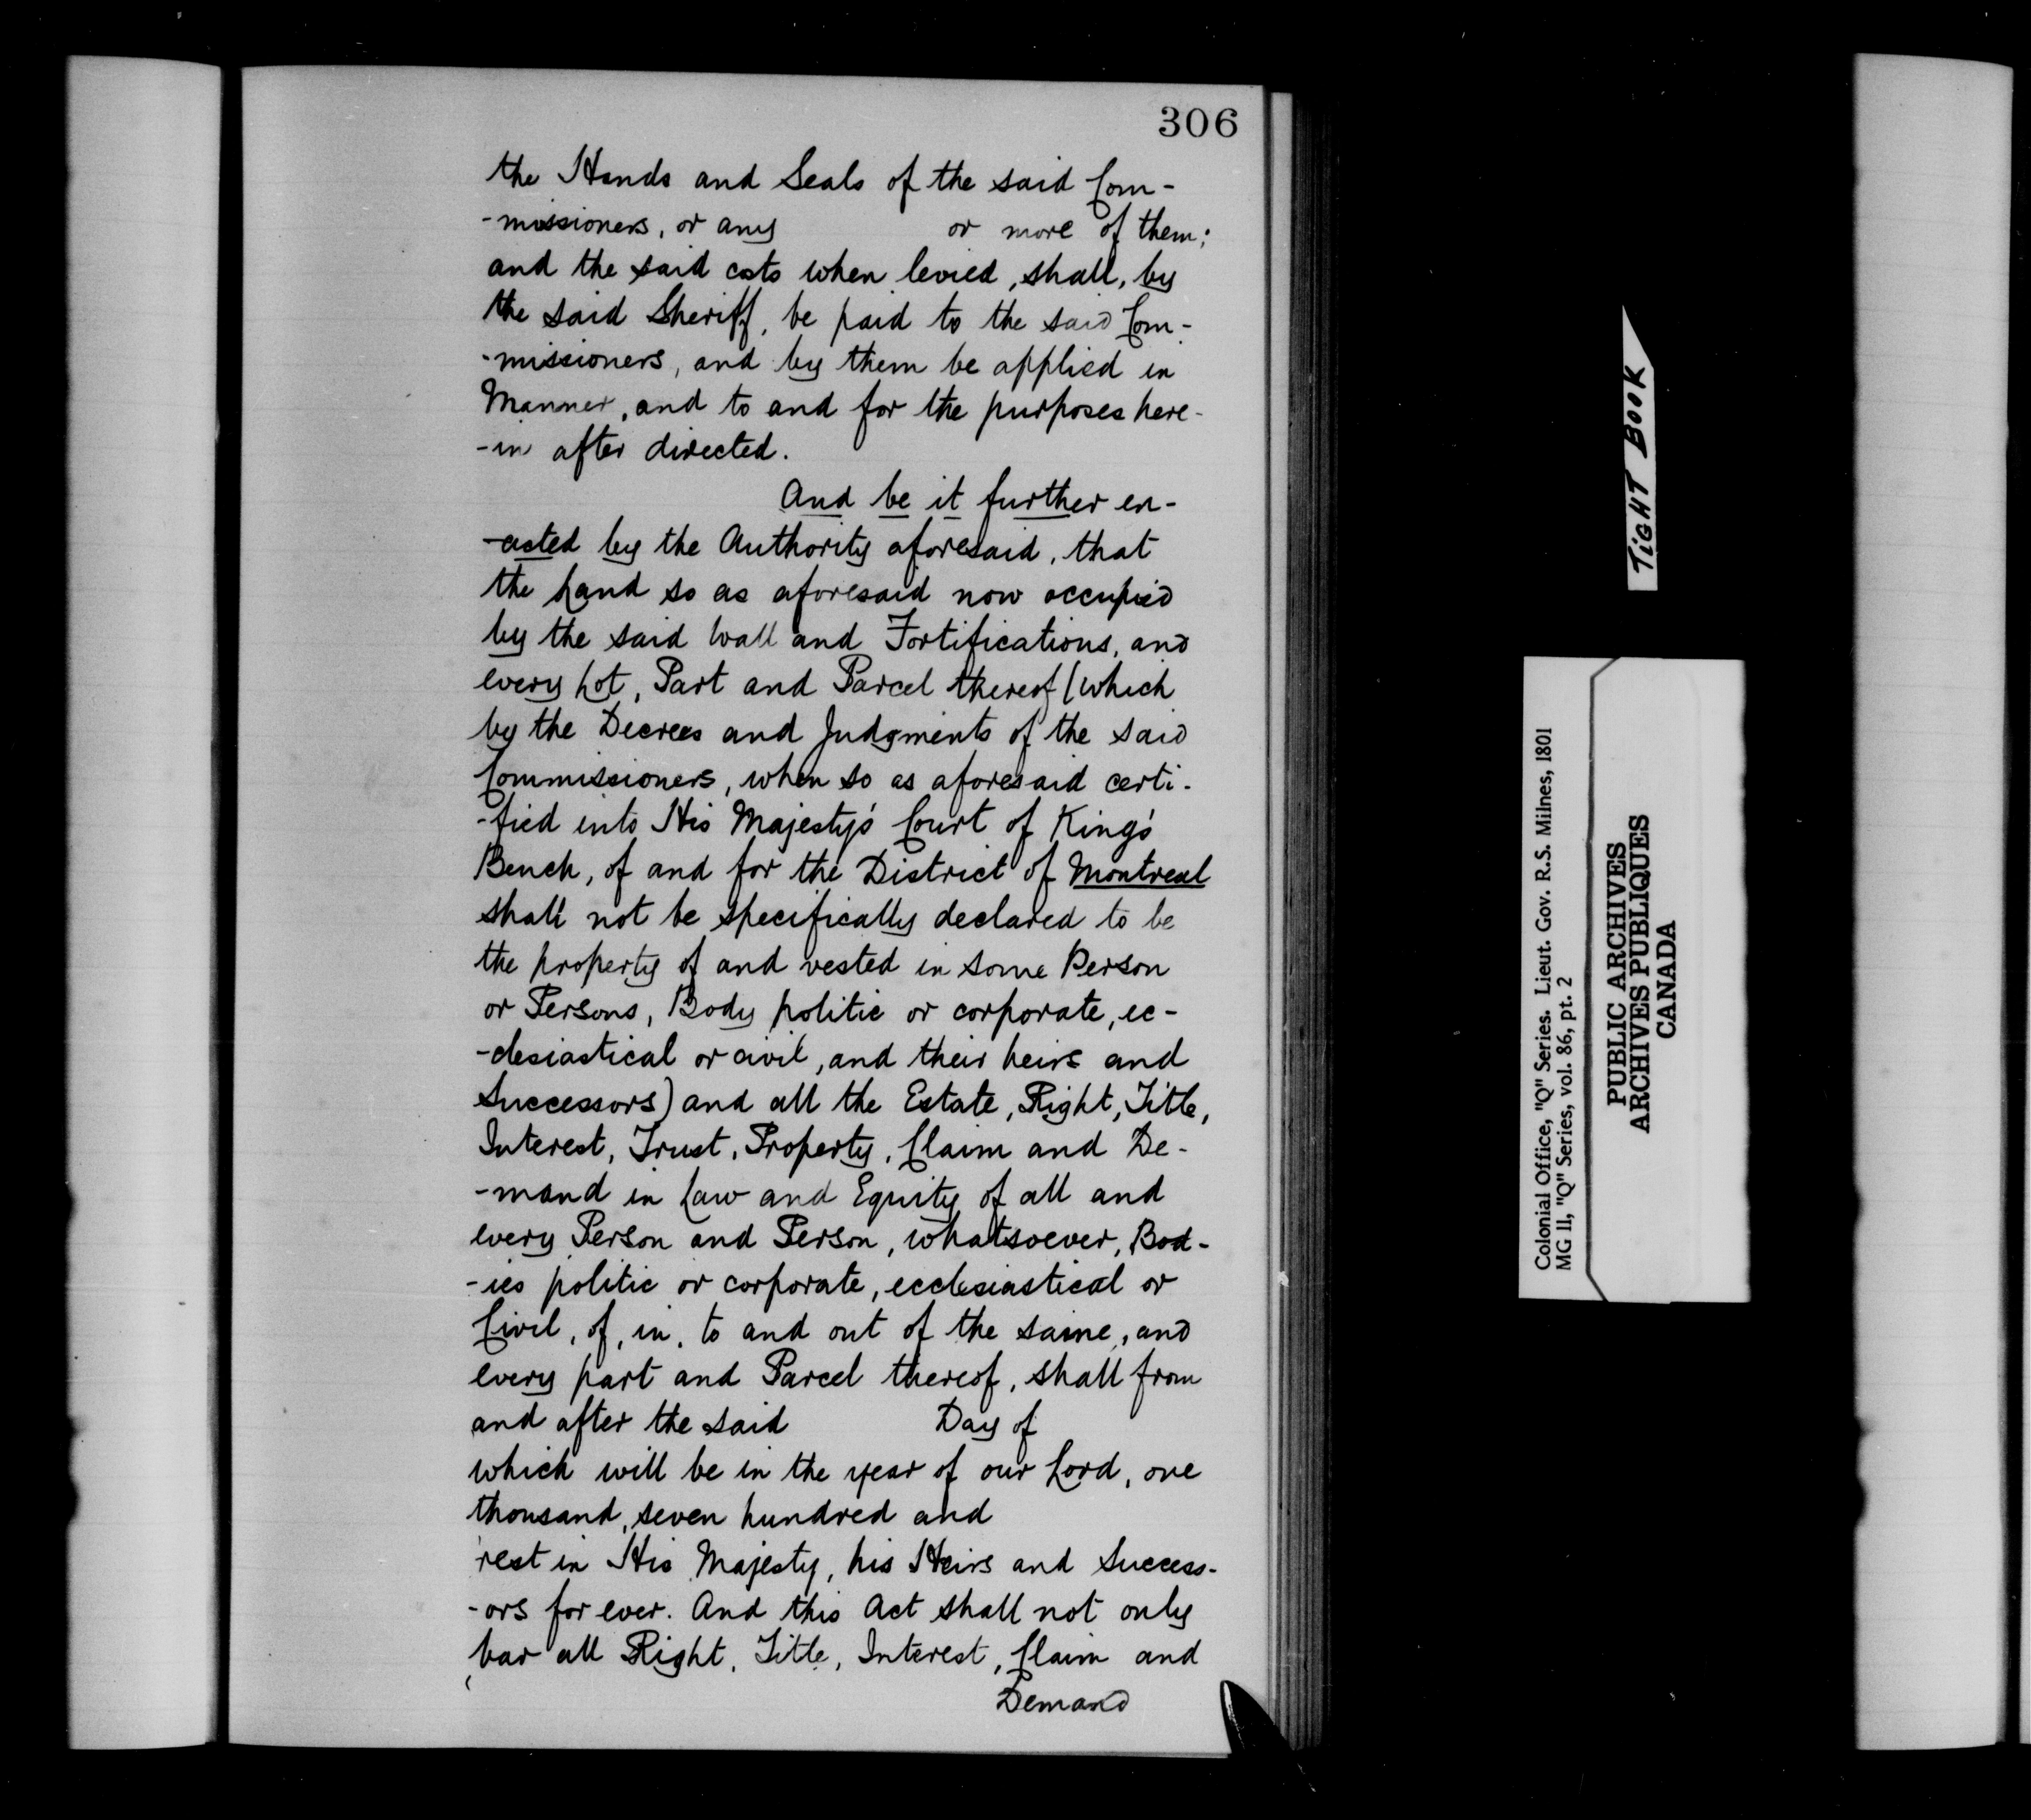 306
the Hands and Seals of the said Com-
-missioners, or any or more of them;
and the said costs when levied, shall, by
the said Sheriff, be paid to the said Com-
-missioners, and by them be applied in
Manner, and to and for the purposes here-
-in after directed.
And be it further en-
-acted by the Authority aforesaid, that
the Land so as aforesaid now occupied
by the said Wall and Fortifications, and
every Lot, Part and Parcel thereof (which
by the Decrees and Judgments of the said
Commissioners, when so as aforesaid certi-
-fied into His Majesty's Court of King's
Bench, of and for the District of Montreal
shall not be specifically declared to be
the property of and vested in some Person
or Persons, Body politic or corporate, ec-
-clesiastical or civil, and their heirs and
Successors) and all the Estate, Right, Title,
Interest, Trust, Property, Claim and De-
-mand in Law and Equity of all and
every Person and Person, whatsoever, Bod-
-ies politic or corporate, ecclesiastical or
Civil, of, in, to and out of the same, and
every part and Parcel thereof, shall from
and after the said Day of
which will be in the year of our Lord, one
thousand, seven hundred and
vest in His Majesty, his Heirs and Success-
-ors for ever. And this Act shall not only
bar all Right, Title, Interest, Claim and
Demand
TIGHT BOOK
Colonial Office, "Q" Series. Lieut. Gov. R.S. Milnes, 1801
MG 11, "Q" Series, vol. 86, pt. 2
PUBLIC ARCHIVES
ARCHIVES PUBLIQUES
CANADA